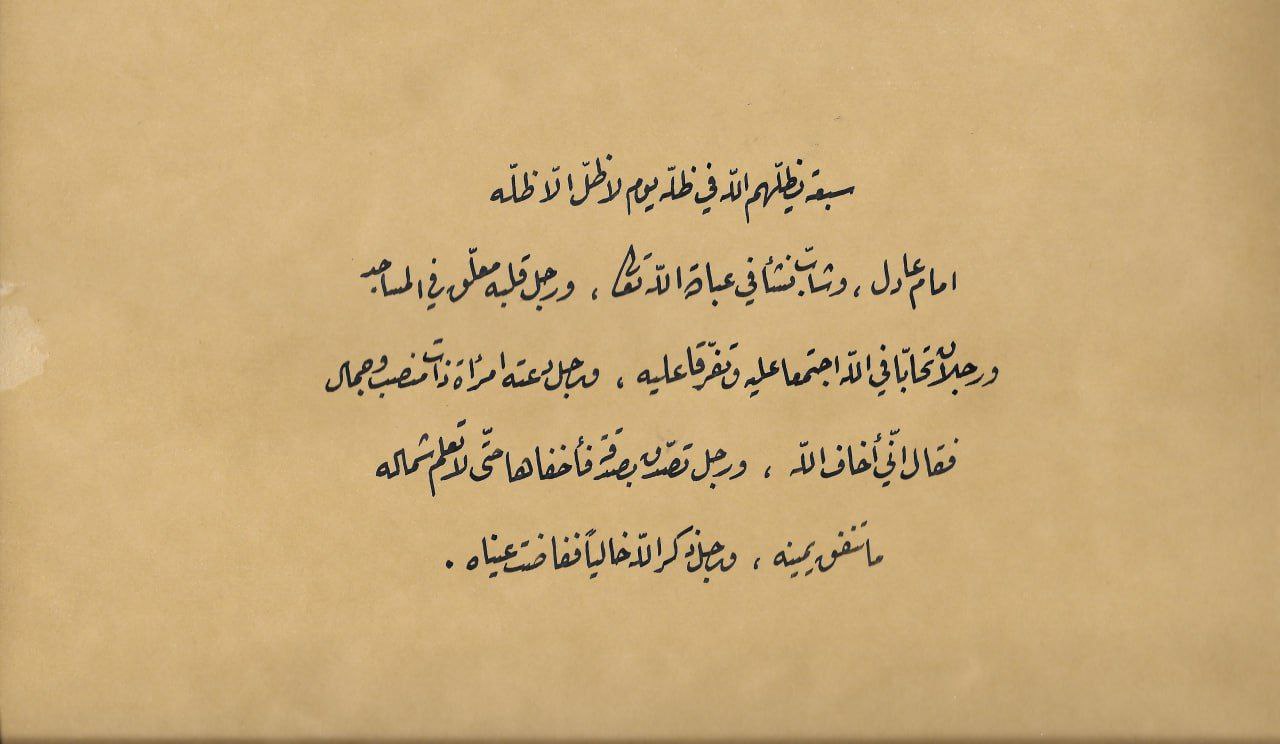 سبعة يظلّهم اللّه في ظله يوم لا ظلّ الّا ظلّه
امام عادل ، وشابّ نشأ في عبادة اللّه تعالى ، ورجل قلبه معلّق في المساجد
ورجلان تحابّا في اللّه اجتمعا عليه وتفرّقا عليه ، ورجل دعته امرأة ذات منصب وجمال
فقال انّي أخاف اللّه ، ورجل تصدّق بصدقة فأخفاها حتّى لا تعلم شماله
ما تنفق يمينه ، ورجل ذكر اللّه خالياً ففاضت عيناه .